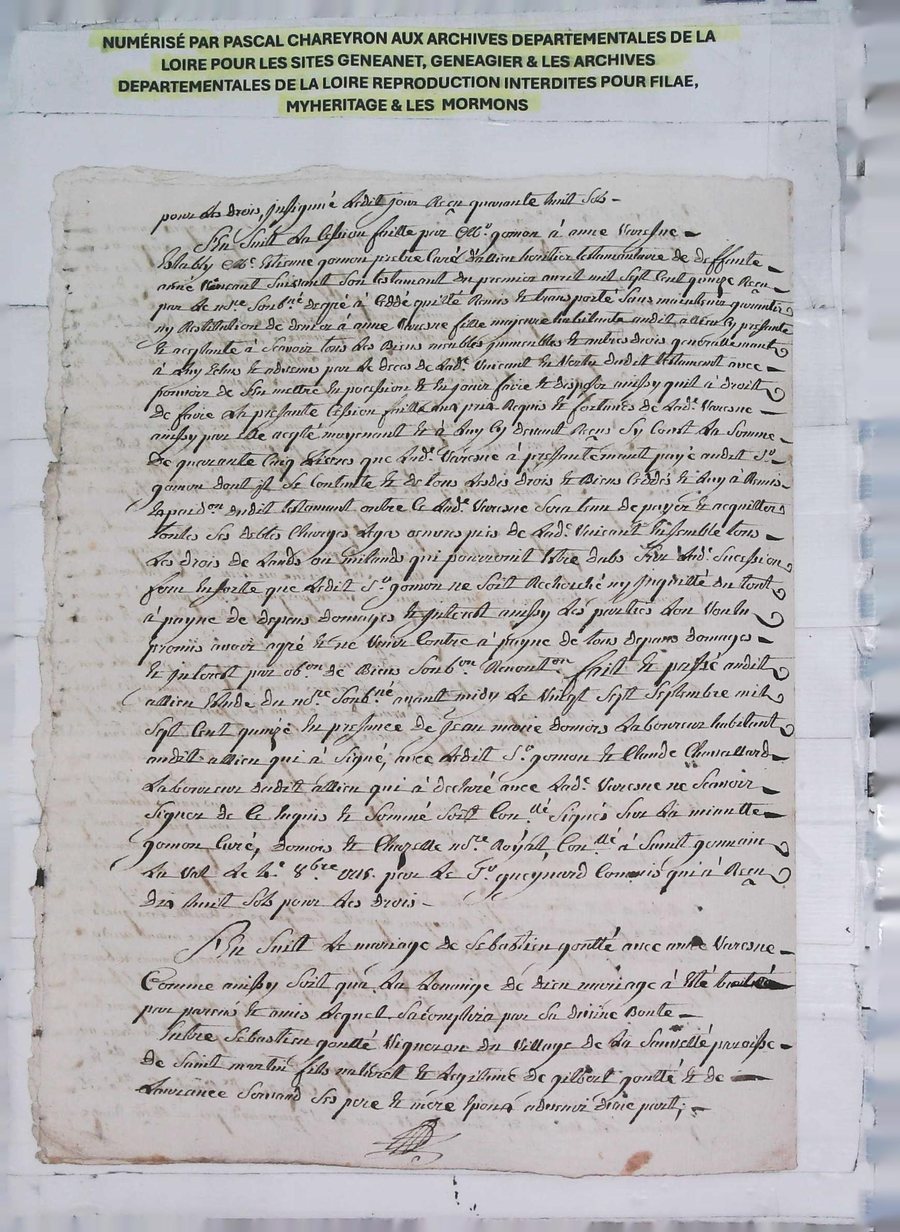 NUMÉRISÉ PAR PASCAL CHAREYRON AUX ARCHIVES DEPARTEMENTALES DE LA
LOIRE POUR LES SITES GENEANET, GENEAGIER & LES ARCHIVES
DEPARTEMENTALES DE LA LOIRE REPRODUCTION INTERDITES POUR FILAE,
MYHERITAGE & LES MORMONS
pour les drois, insignué ledit jour Receu quarante huit sols
S'En suit la cession faitte par Mre gomon à anne Varesne
Estably Mre Etienne gomon prebtre Curé d'allieu heritier testamantaire de deffunte
année Vincant suivant son testamant du premier avril mil sept cent quinze Receu
par le nore soubné de gré à Ceddé quitté Remis et transporté sans maintenir garantir
ny Restitution de denier à anne Varesne fille majeure habitante audit allieu cy presante
et aceptante à scavoir tous les Biens meubles immeubles et autres drois generallemant
à luy echus et advenus par le deces de lade Vincant en Vertu dudit testament avec
pouvoir de s'en mettre en pocession et en jouir faire et disposer ainssy quil à droit
de faire la presante cession faitte aux pris Requis et fortunes de lade Varesne
ainssy par Elle acepté moyenant et à luy cy devant Receu la somme
de quarante cinq livres que lade Varesne à presantemant payé audit Sr
gomon dont il se contente et de tous lesdis drois et Biens Ceddés et luy à Remis
dudit testamant outre ce lade Varesne sera tenu de payer et acquitter
toutes ses debtes charges legs œuvres pies de lade Vincant Enssemble tous
les drois de Lauds ou milauds qui pourroint Etre dubs lade sucession
Ensorte que ledit Sr gomon ne soit Recherché ny inquietté du tout
à payne de depens domages et interest ainssy les parties l'on Voulu
promis avoir agré et ne Venir contre à payne de tous depans domages
et interest par obon de Biens soubon Renonton fait et passé audit
allieu Etude du nore soubné avant midy le Vingt sept septembre mil
sept cent quinze En presance de Jean marie domois laboureur habitant
audit allieu qui à signé, avec ledit Sr gomon et Claude Chavallard
laboureur dudit allieu qui à declaré avec lade Varesne ne scavoir
signer de ce Enquis et sommé soit conllé signés sur la minutte
gomon Curé, domois et Chazelle nore Royal Conllé à saint germain
la Val le 4e 8bre 1715 par le Sr queynard Commis qui à Receu
dix huit sols pour les drois
S'En suit le mariage de Sebastien goutté avec anne Varesne
Comme ainssy soit qua la Louange de dieu mariage à Eté traitté
par parens et amis lequel s'acomplira par sa divine Bonte
Entre Sebastien goutté Vigneron du Village de la paroisse
de saint martin fils naturel et legitime de gilbert goutté et de
Laurance ses pere et mere Epoux advenir d'une part;